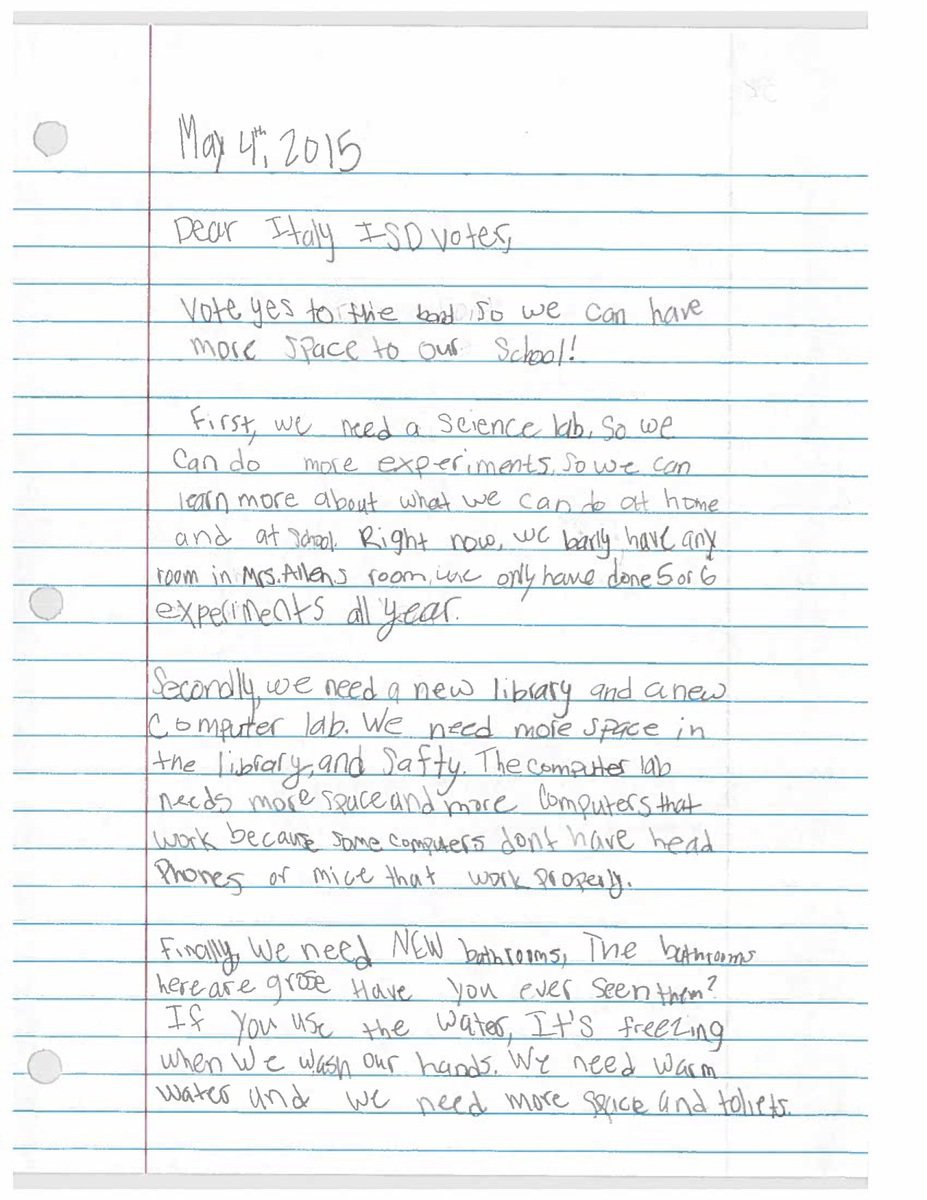 May 4th, 2015
Dear Italy ISD voter,
Vote yes to the bond, so we can have
more space to our School!
First, we need a science lab. So we
Can do more experiments. So we can
learn more about what we can do at home
and at school. Right now, we barly have any
room in Mrs. Allens room, we only have done 5 or 6
experiments all year.
Secondly, we need a new library and a new
Computer lab. We need more space in
the library, and Safty. The computer lab
needs more space and more Computers that
work because some computers dont have head
Phones or mice that work properly.
Finally, We need NEW bathrooms, The bathrooms
here are grose Have you ever seen them?
If you use the water, It's freezing
when we wash our hands. We need warm
water and we need more space and toliets.